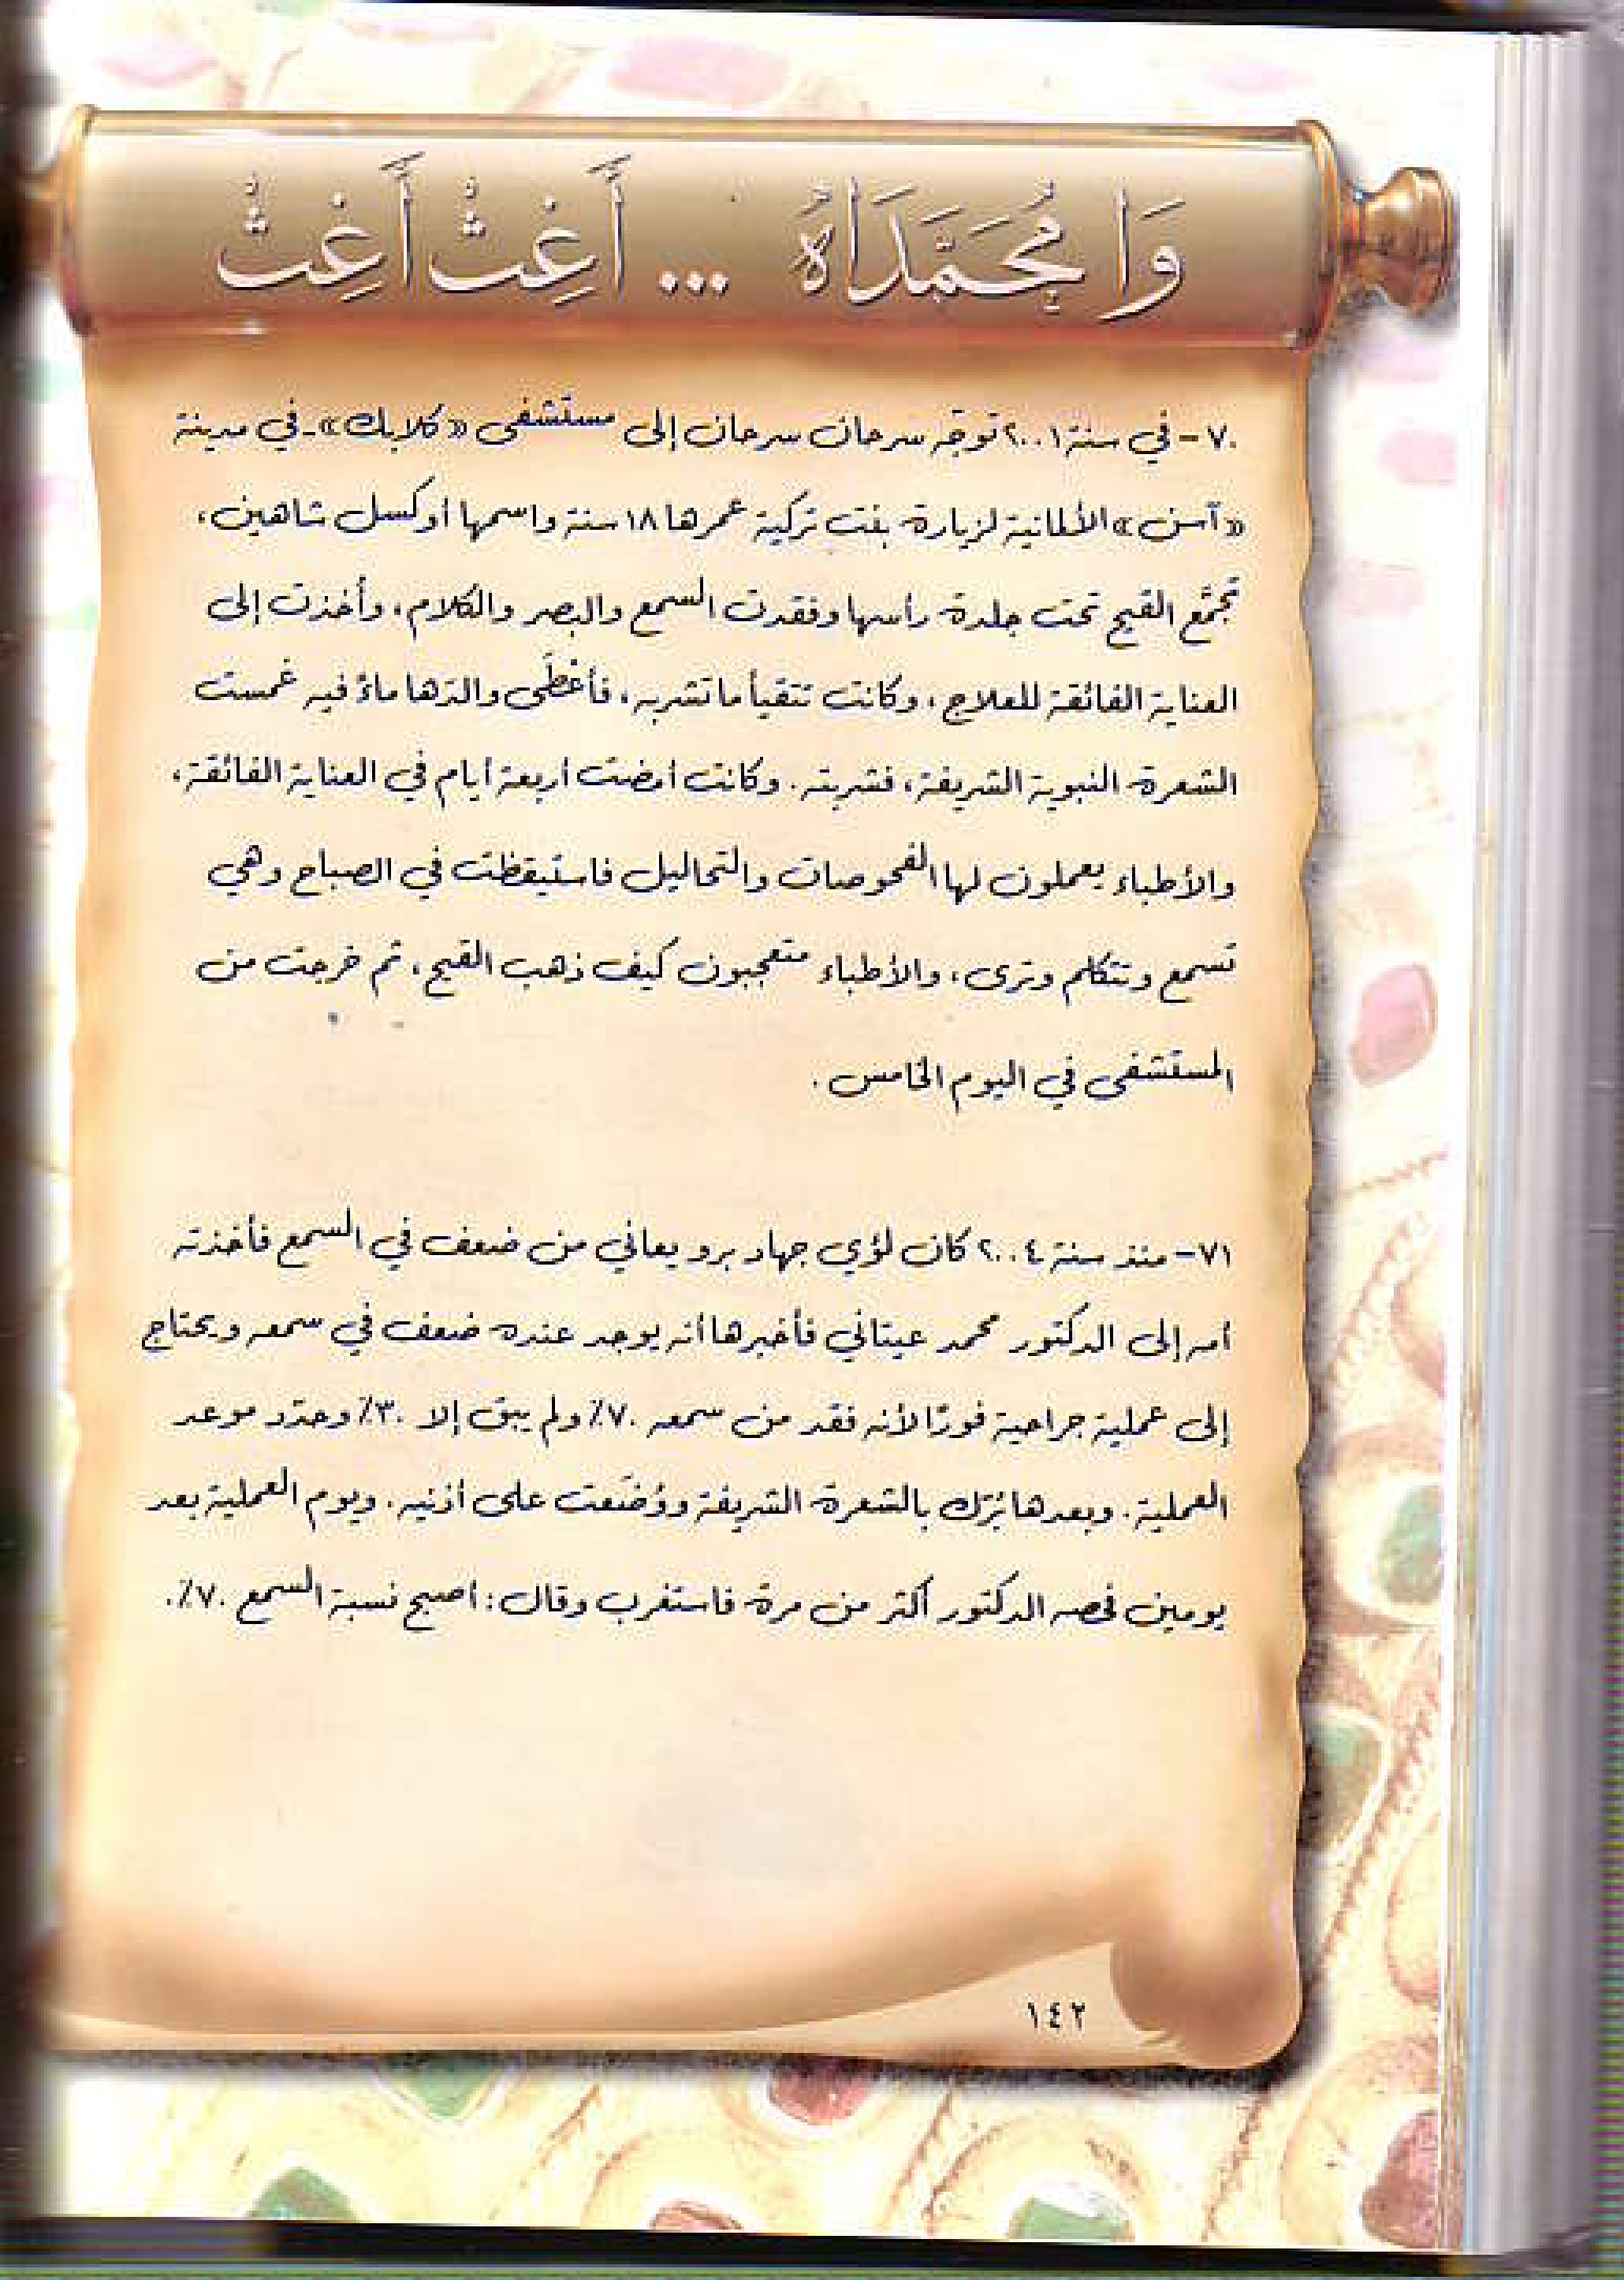 وَا مُحَمَّدَاهُ ... أَغِثْ أَغِثْ
٧٠- في سنة ٢٠٠١ توجّه سرحان سرحان إلى مستشفى «كلابك»ـ في مدينة
«آسن» الألمانية لزيارة بنت تركية عمرها ١٨ سنة واسمها أوكسل شاهين،
تجمَّع القيح تحت جلدة رأسها وفقدت السمع والبصر والكلام، وأخذت إلى
العناية الفائقة للعلاج، وكانت تتقيأ ما تشربه، فأعْطَى والدَها ماءً فيه غمست
الشعرة النبوية الشريفة، فشربته. وكانت أمضت أربعة أيام في العناية الفائقة،
والأطباء يعملون لها الفحوصات والتحاليل فاستيقظت في الصباح وهي
تسمع وتتكلم وترى، والأطباء متعجبون كيف ذهب القيح، ثم خرجت من
المستشفى في اليوم الخامس.
٧١- منذ سنة ٢٠٠٤ كان لؤي جهاد برو يعاني من ضعف في السمع فأخذته
أمه إلى الدكتور محمد عيتاني فأخبرها أنه يوجد عنده ضعف في سمعه ويحتاج
إلى عملية جراحية فورًا لأنه فقد من سمعه ٧٠٪ ولم يبق إلا ٣٠٪ وحدّد موعد
العملية. وبعدها تبرّك بالشعرة الشريفة ووُضَعت على أذنيه. ويوم العملية بعد
يومين فحصه الدكتور أكثر من مرة فاستغرب وقال: أصبح نسبة السمع ٧٠٪.
١٤٢